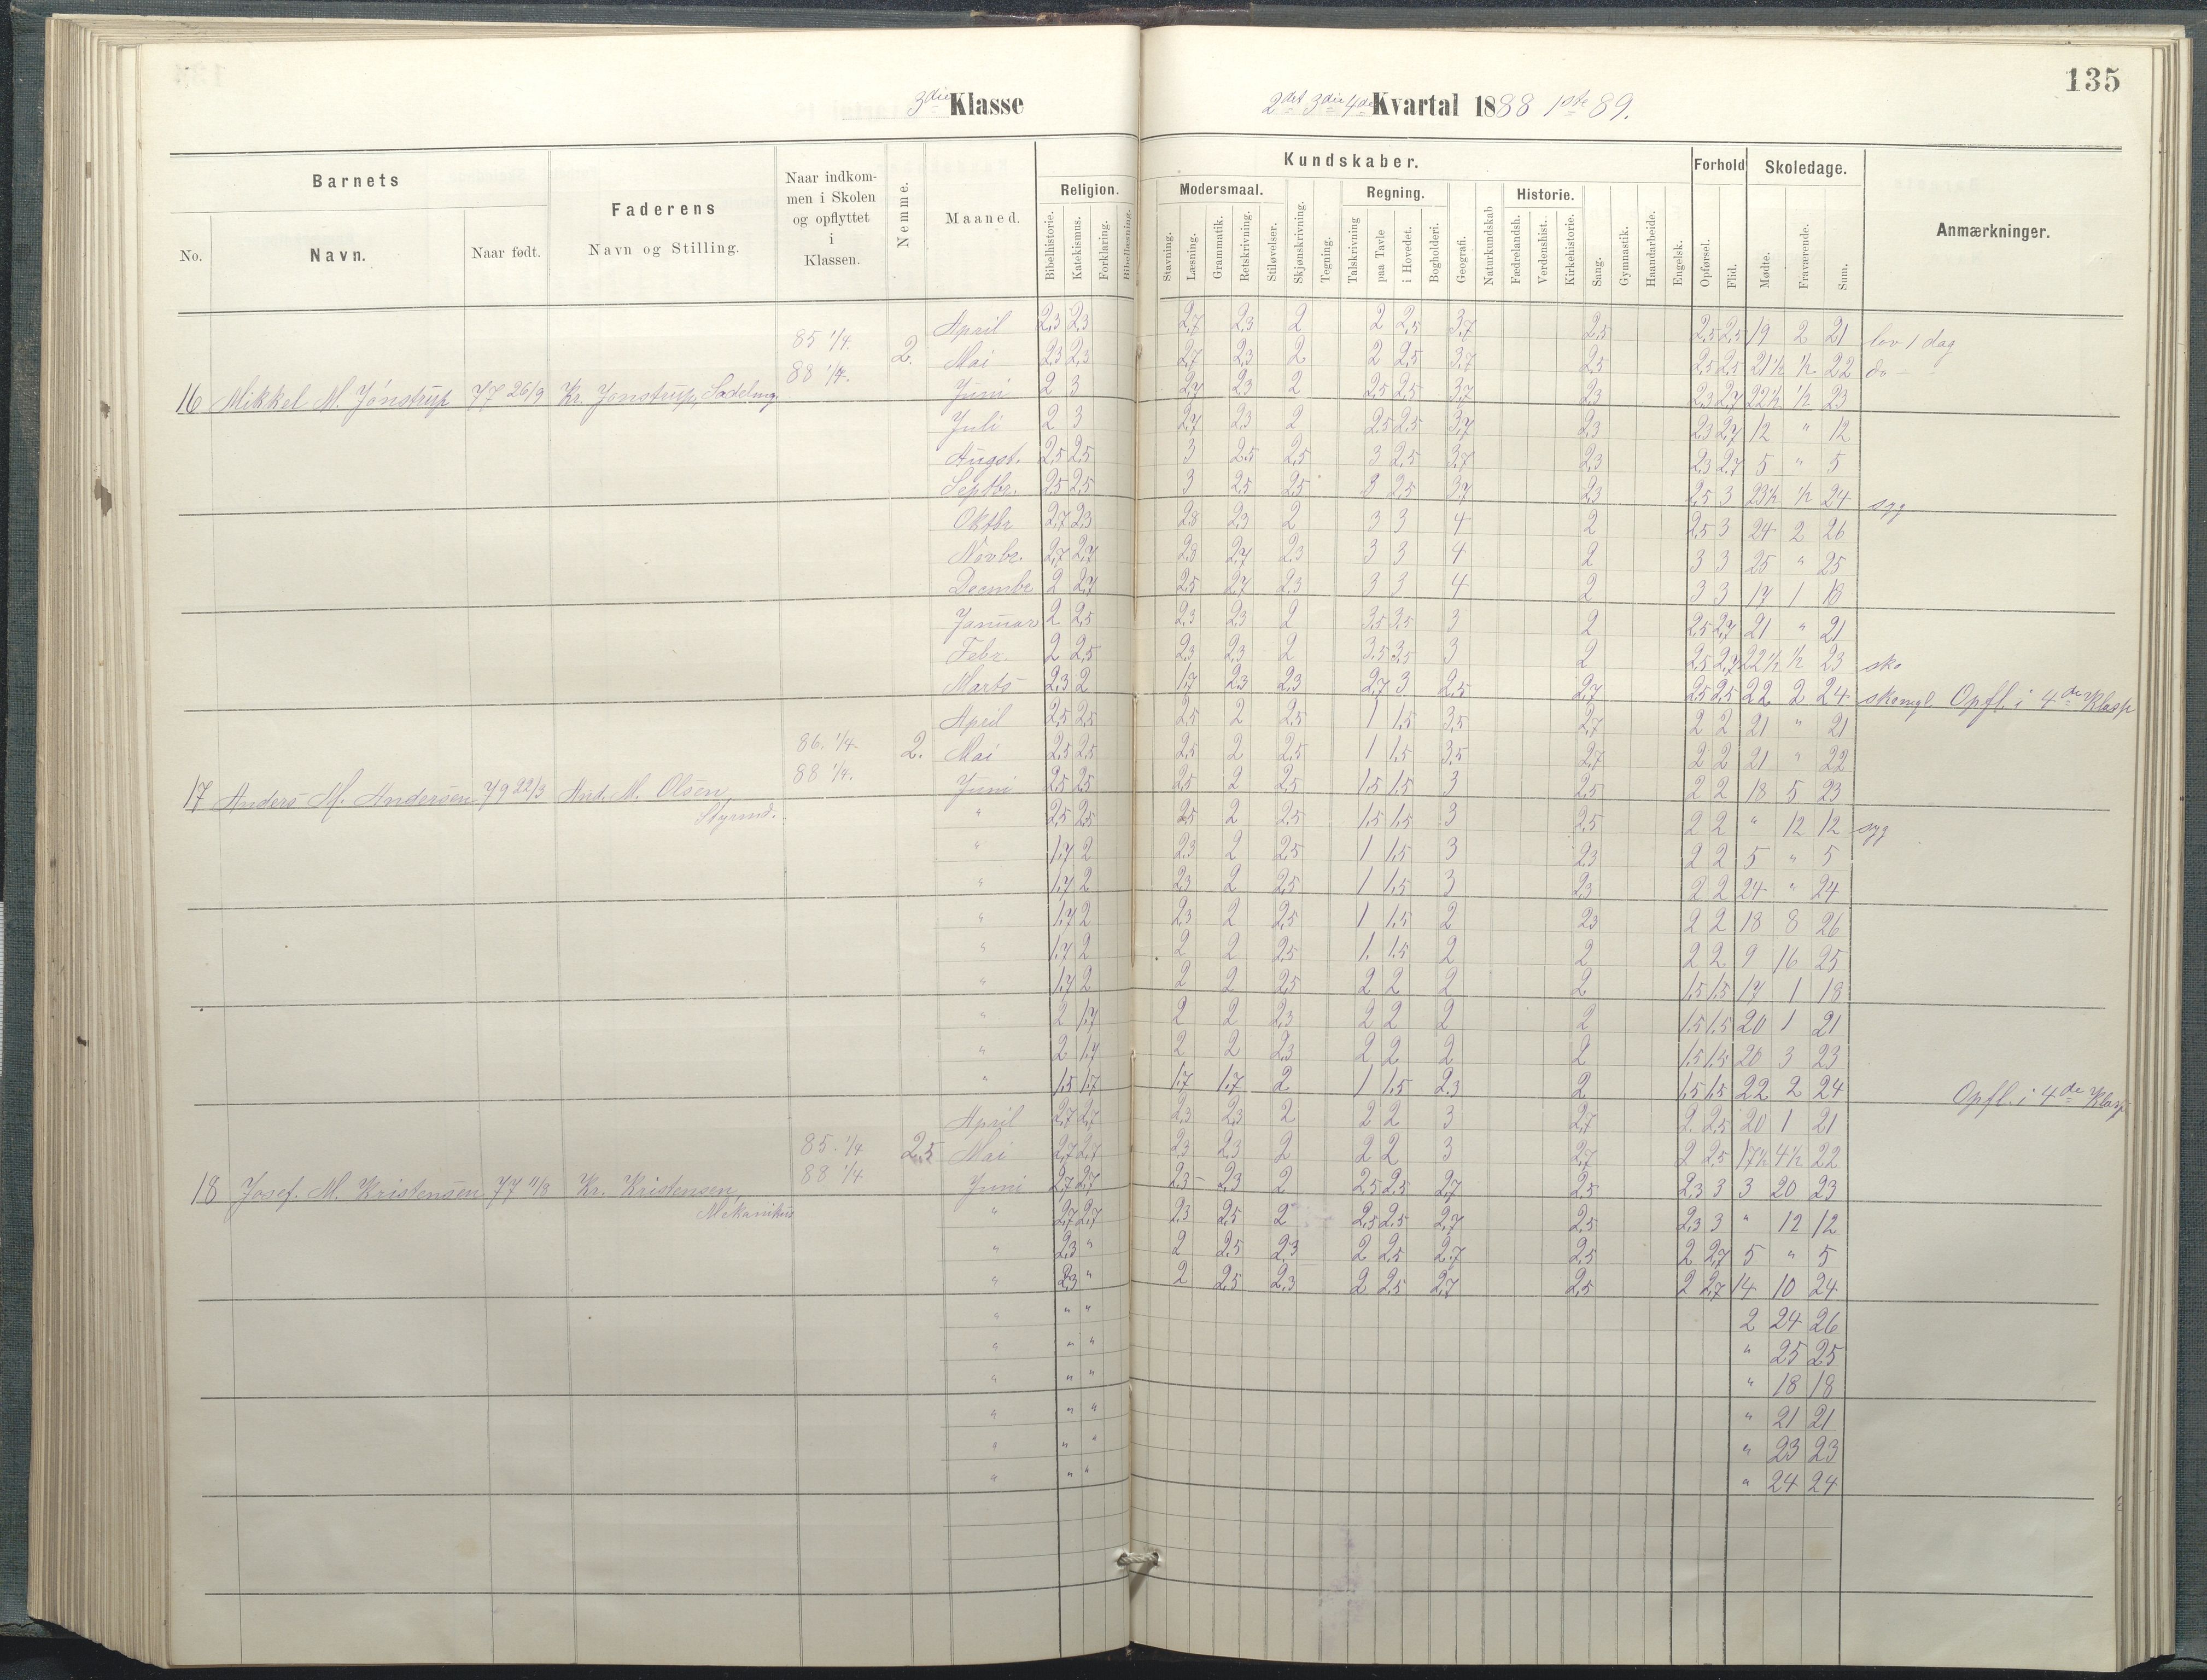 135
3die Klasse 2det 3die 4de Kvartal 1888 1ste 89.
Barnets Faderens Naar indkommen i Skolen og opflyttet i Klassen. Nemme. Maaned. Kundskaber. Forhold Skoledage. Anmærkninger.
Religion. Modersmaal. Regning. Historie.
No. Navn. Naar født. Navn og Stilling. Bibelhistorie. Katekismus. Forklaring. Bibellæsning. Stavning. Læsning. Grammatik. Retskrivning. Stiløvelser. Skjønskrivning. Tegning. Talskrivning paa Tavle i Hovedet. Bogholderi. Geografi. Naturkundskab Fædrelandsh. Verdenshist. Kirkehistorie. Sang. Gymnastik. Haandarbeide. Engelsk. Opførsel. Flid. Mødte. Fraværende. Sum.
85 1/4. 2. April 2,3 2,3 2,7 2,3 2 2 2,5 3,7 2,5 2,5 2,5 19 2 21 lov 1 dag
88 1/4. Mai 2,3 2,3 2,7 2,3 2 2 2,5 3,7 2,5 2,5 2,5 21½ ½ 22 do
16 Mikkel M. Jonstrup 77 26/9 Kr. Jonstrup, Juni 2 3 2,7 2,3 2 2,5 2,5 3,7 2,3 2,3 2,7 22½ ½ 23
Juli 2 3 2,7 2,3 2 2,5 2,5 3,7 2,3 2,3 2,7 12 " 12
Augst. 2,5 2,5 3 2,5 2,5 3 2,5 3,7 2,3 2,3 2,7 5 " 5
Septbr. 2,5 2,5 3 2,5 2,5 3 2,5 3,7 2,3 2,5 3 23½ ½ 24 syg
Oktbr 2,7 2,3 2,8 2,3 2 3 3 4 2 2,5 3 24 2 26
Novbr. 2,7 2,7 2,8 2,7 2,3 3 3 4 2 3 3 25 " 25
Decmbr 2 2,7 2,5 2,7 2,3 3 3 4 2 3 3 17 1 18
Januar 2 2,5 2,3 2,3 2 3,5 3,5 3 2 2,5 2,7 21 " 21
Febr. 2 2,5 2,3 2,3 2 3,5 3,5 3 2 2,5 2,7 22½ ½ 23 sko
Marts 2,3 2 1,7 2,3 2,3 2,7 3 2,5 2,7 2,5 2,5 22 2 24 skomgl. Opfl. i 4de Klasse
April 2,5 2,5 2,5 2 2,5 1 1,5 3,5 2,7 2 2 21 " 21
86. 1/4. 2. Mai 2,5 2,5 2,5 2 2,5 1 1,5 3,5 2,7 2 2 21 " 22
88 1/4. Juni 2,5 2,5 2,5 2 2,5 1,5 1,5 3 2,5 2 2 18 5 23
17 Anders M. Andersen 79 22/3 And. M. Olsen,
Styrmd. " 2,5 2,5 2,5 2 2,5 1,5 1,5 3 2,5 2 2 " 12 12 syg
" 1,7 2 2,3 2 2,5 1 1,5 3 2,3 2 2 5 " 5
" 1,7 2 2,3 2 2,5 1 1,5 3 2,3 2 2 24 " 24
" 1,7 2 2,3 2 2,5 1 1,5 2 2,3 2 2 18 8 26
" 1,7 2 2 2 2,5 1. 1,5 2 2 2 2 9 16 25
" 1,7 2 2 2 2,5 2 2 2 2 1,5 1,5 17 1 18
" 2 1,7 2 2 2,3 2 2 2 2 1,5 1,5 20 1 21
" 2 1,7 2 2 2,3 2 2 2 2 1,5 1,5 20 3 23
" 1,5 1,7 1,7 1,7 2 1 1,5 2,3 2 1,5 1,5 22 2 24 Opfl. i 4de Klasse
April 2,7 2,7 2,3 2,3 2 2 2 3 2,7 2 2,5 20 1 21
85. 1/4 2,5 Mai 2,7 2,7 2,3 2,3 2 2 2 3 2,7 2 2,5 17½ 4½ 22
88 1/4. Juni 2,7 2,7 2,3 2,3 2 2,5 2,5 2,7 2,5 2,3 3 3 20 23
18 Josef. M. Kristensen 77 11/8 Kr. Kristensen,
Mekanikus " 2,7 2,7 2,3 2,5 2 2,5 2,5 2,7 2,5 2,3 3 " 12 12
" 2,3 " 2 2,5 2,3 2 2,5 2,7 2,5 2 2,7 5 " 5
" 2,3 " 2 2,5 2,3 2 2,5 2,7 2,5 2 2,7 14 10 24
" " " 2 24 26
" " " " 25 25
" " " " 18 18
" " " " 21 21
" " " " 23 23
" " " " 24 24